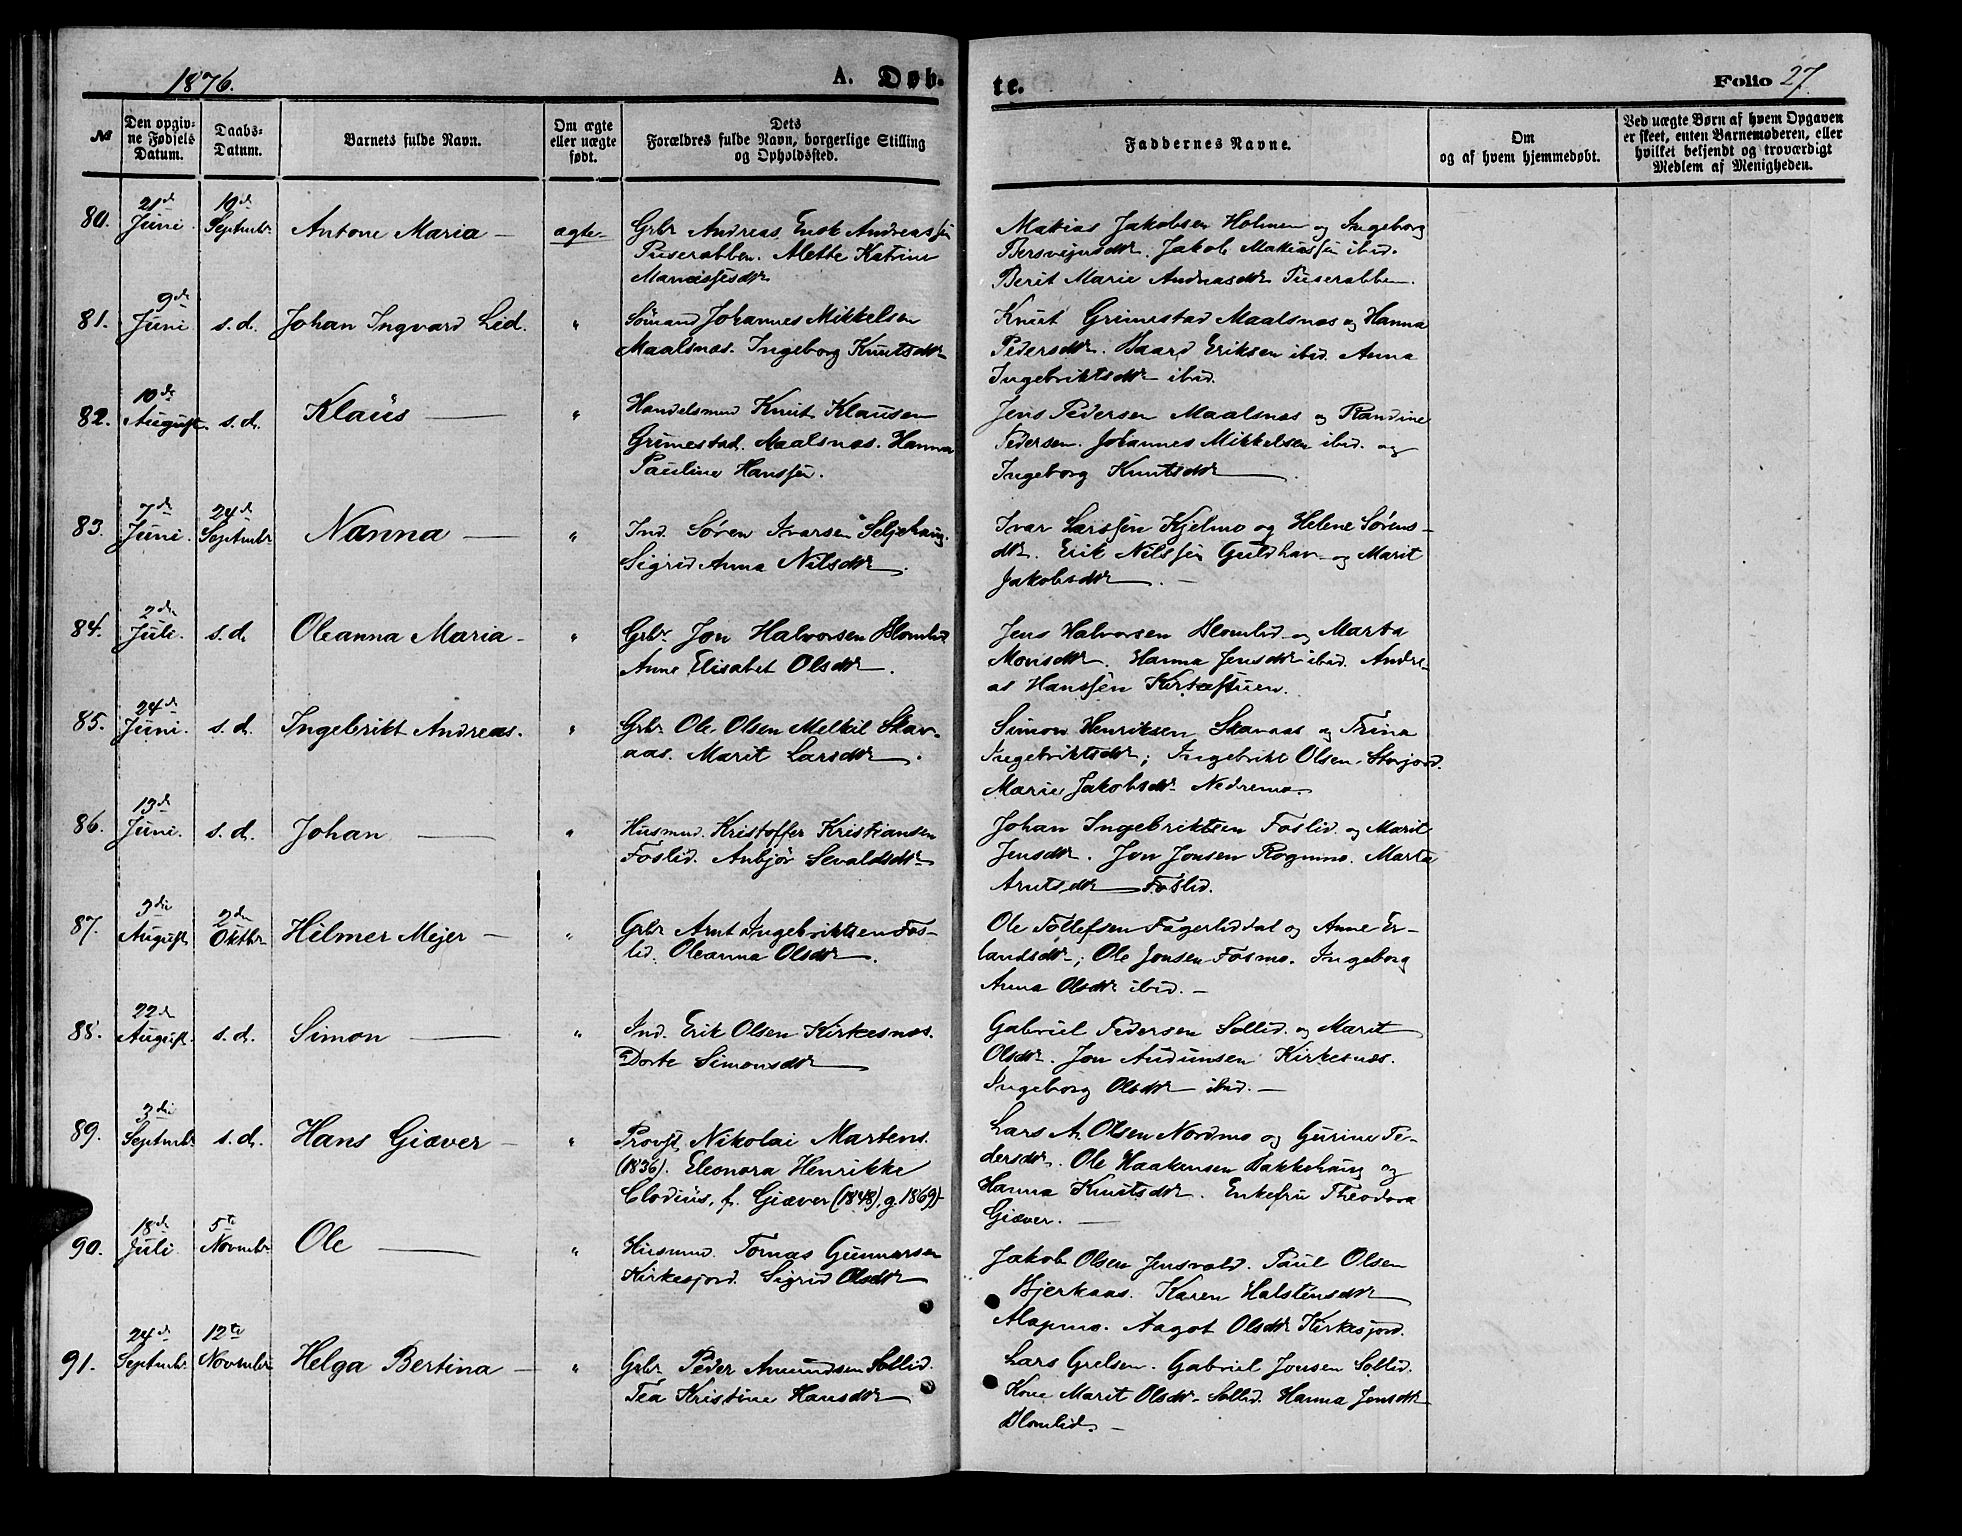 1876.
A. Døb-
te.
Folio 27.
№
Den opgiv-
ne Fødsels
Datum.
Daabs-
Datum.
Barnets fulde Navn.
Om ægte
eller uægte
født.
Dets
Forældres fulde Navn, borgerlige Stilling
og Opholdssted.
Faddernes Navne.
Om
og af hvem hjemmedøbt.
Ved uægte Børn af hvem Opgaven
er skeet, enten Barnemoderen, eller
hvilket bekjendt og troværdigt
Medlem af Menigheden.
80. 21de Juni. 10de Septmbr. Antone Maria — ægte.
Grbr. Andreas Enok Andreassen
Tuserabben. Mette Katrine
Manassesdtr
Matias Jakobsen Holmen og Ingeborg
Bersvejnsdtr. Jakob Matiassen ibid.
Berit Marie Andreasdtr Tuserabben.
81. 9de Juni s.d. Johan Ingvard Lid. "
Sömand Johannes Mikkelsen
Maalsnæs. Ingeborg Knutsdtr
Knut Grimestad Maalsnæs og Hanna
Pedersdtr. Baard Eriksen ibid. Anna
Ingebriktsdtr ibid.
82. 10de August. s.d. Klaüs — "
Handelsmnd Knut Klausen
Grimestad. Maalsnæs. Hanna
Pauline Hanssen.
Jens Pedersen Maalsnæs og Randine
Pedersen. Johannes Mikkelsen ibid. og
Ingeborg Knutsdtr.
83. 7de Juni. 24de Septmbr Nanna — "
Ind. Søren Ivarsen Seljehaug.
Sigrid Anna Nilsdtr.
Ivar Larssen Kjelmo og Helene Sørens-
dtr. Erik Nilssen Guldhav og Marit
Jakobsdtr. —
84. 2den Juli. s.d. Oleanna Maria — "
Grbr. Jon Halvorsen Blomlid
Anne Elisabet Olsdtr.
Jens Halvorsen Blomlid og Marta
Monsdtr. Hanna Jensdtr ibid. Andre-
as Hanssen
85. 24de Juni. s.d. Ingebrikt Andreas. "
Grbr Ole Olsen Melkil Skav-
aas. Marit Larsdtr.
Simon Henriksen Skavaas og Trina
Ingebriktsdtr; Ingebrikt Olsen Storjord.
Marie Jakobsdtr. Nedremo.
86. 13de Juni. s.d. Johan — "
Husmnd. Kristoffer Kristiansen
Foslid. Anbjør Sevaldsdtr
Johan Ingebriktsen Foslid. og Marit
Jensdtr. Jon Jonsen Rognmo. Marta
Arntsdtr Foslid.
87. 3die August 2den Oktbr Hilmer Mejer — "
Grbr Arnt Ingebriktsen Fos-
lid. Oleanna Olsdtr.
Ole Tollefsen Fagerliddal og Anne Er-
landsdtr; Ole Jonsen Fosmo. Ingeborg
Anna Olsdtr ibid. —
88. 22de August. s.d. Simon — "
Ind. Erik Olsen Kirkesnæs.
Dorte Simonsdtr
Gabriel Pedersen Sollid. og Marit
Olsdtr. Jon Audunsen Kirkesnæs.
Ingeborg Olsdtr ibid. —
89. 3die Septmbr. s.d. Hans Giæver — "
Provst Nikolai Martens.
(1836). Eleonora Henrikke
Clodius, f. Giæver (1848), g. 1869)
Lars A. Olsen Nordmo og Gurine Pe-
dersdtr. Ole Haakensen Bakkehaug og
Hanna Knutsdtr. Enkefru Theodora
Giæver. —
90. 18de Juli. 5te Novmbr. Ole — "
Husmnd. Tomas Gunnarsen
Kirkesjord. Sigrid Olsdtr
Jakob Olsen Jensvold. Paul Olsen
Bjerkaas. Karen Halstensdtr
Alapmo. Aagot Olsdtr Kirkesjord.
91. 24de Septmbr. 12te Novmbr Helga Bertina — "
Grbr Peder Amundsen Sollid.
Tea Kristine Hansdtr
Lars Grelsen. Gabriel Jonsen Sollid.
Kone Marit Olsdtr. Sollid. Hanna Jensdtr
Blomlid. —